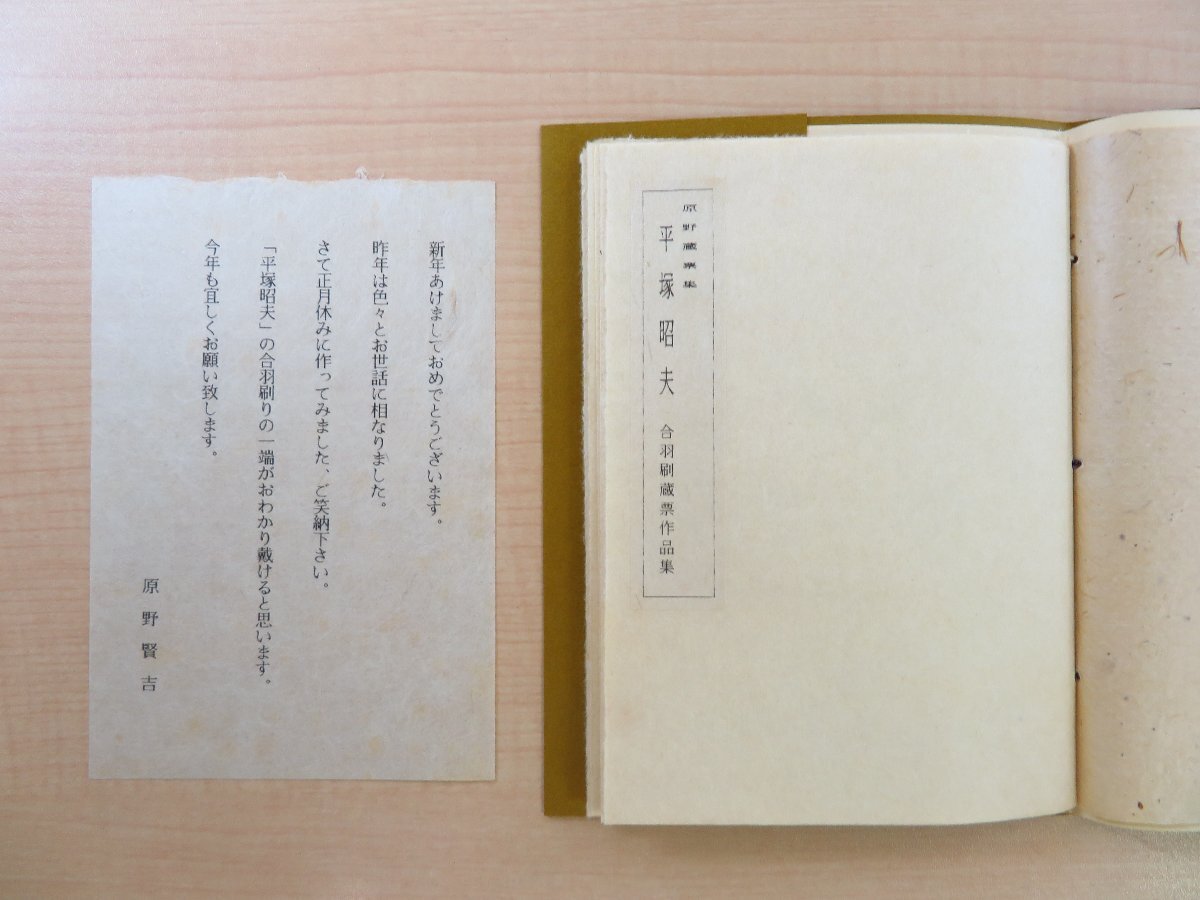 新年あけましておめでとうございます。
昨年は色々とお世話に相なりました。
さて正月休みに作ってみました、ご笑納下さい。
「平塚昭夫」の合羽刷りの一端がおわかり戴けると思います。
今年も宜しくお願い致します。
原野賢吉
原野蔵票集
平塚昭夫 合羽刷蔵票作品集